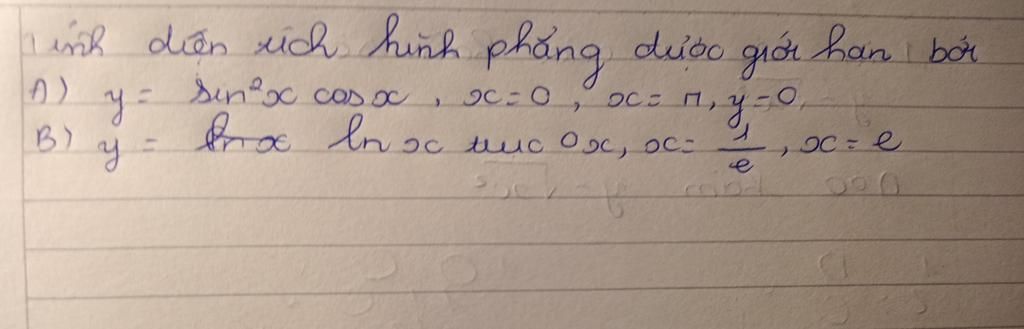 Tính diện tích hình phẳng được giới hạn bởi
A) y = sin²x cosx, x=0, x=π, y=0
B) y = ln x trục Ox, x= 1/e, x=e